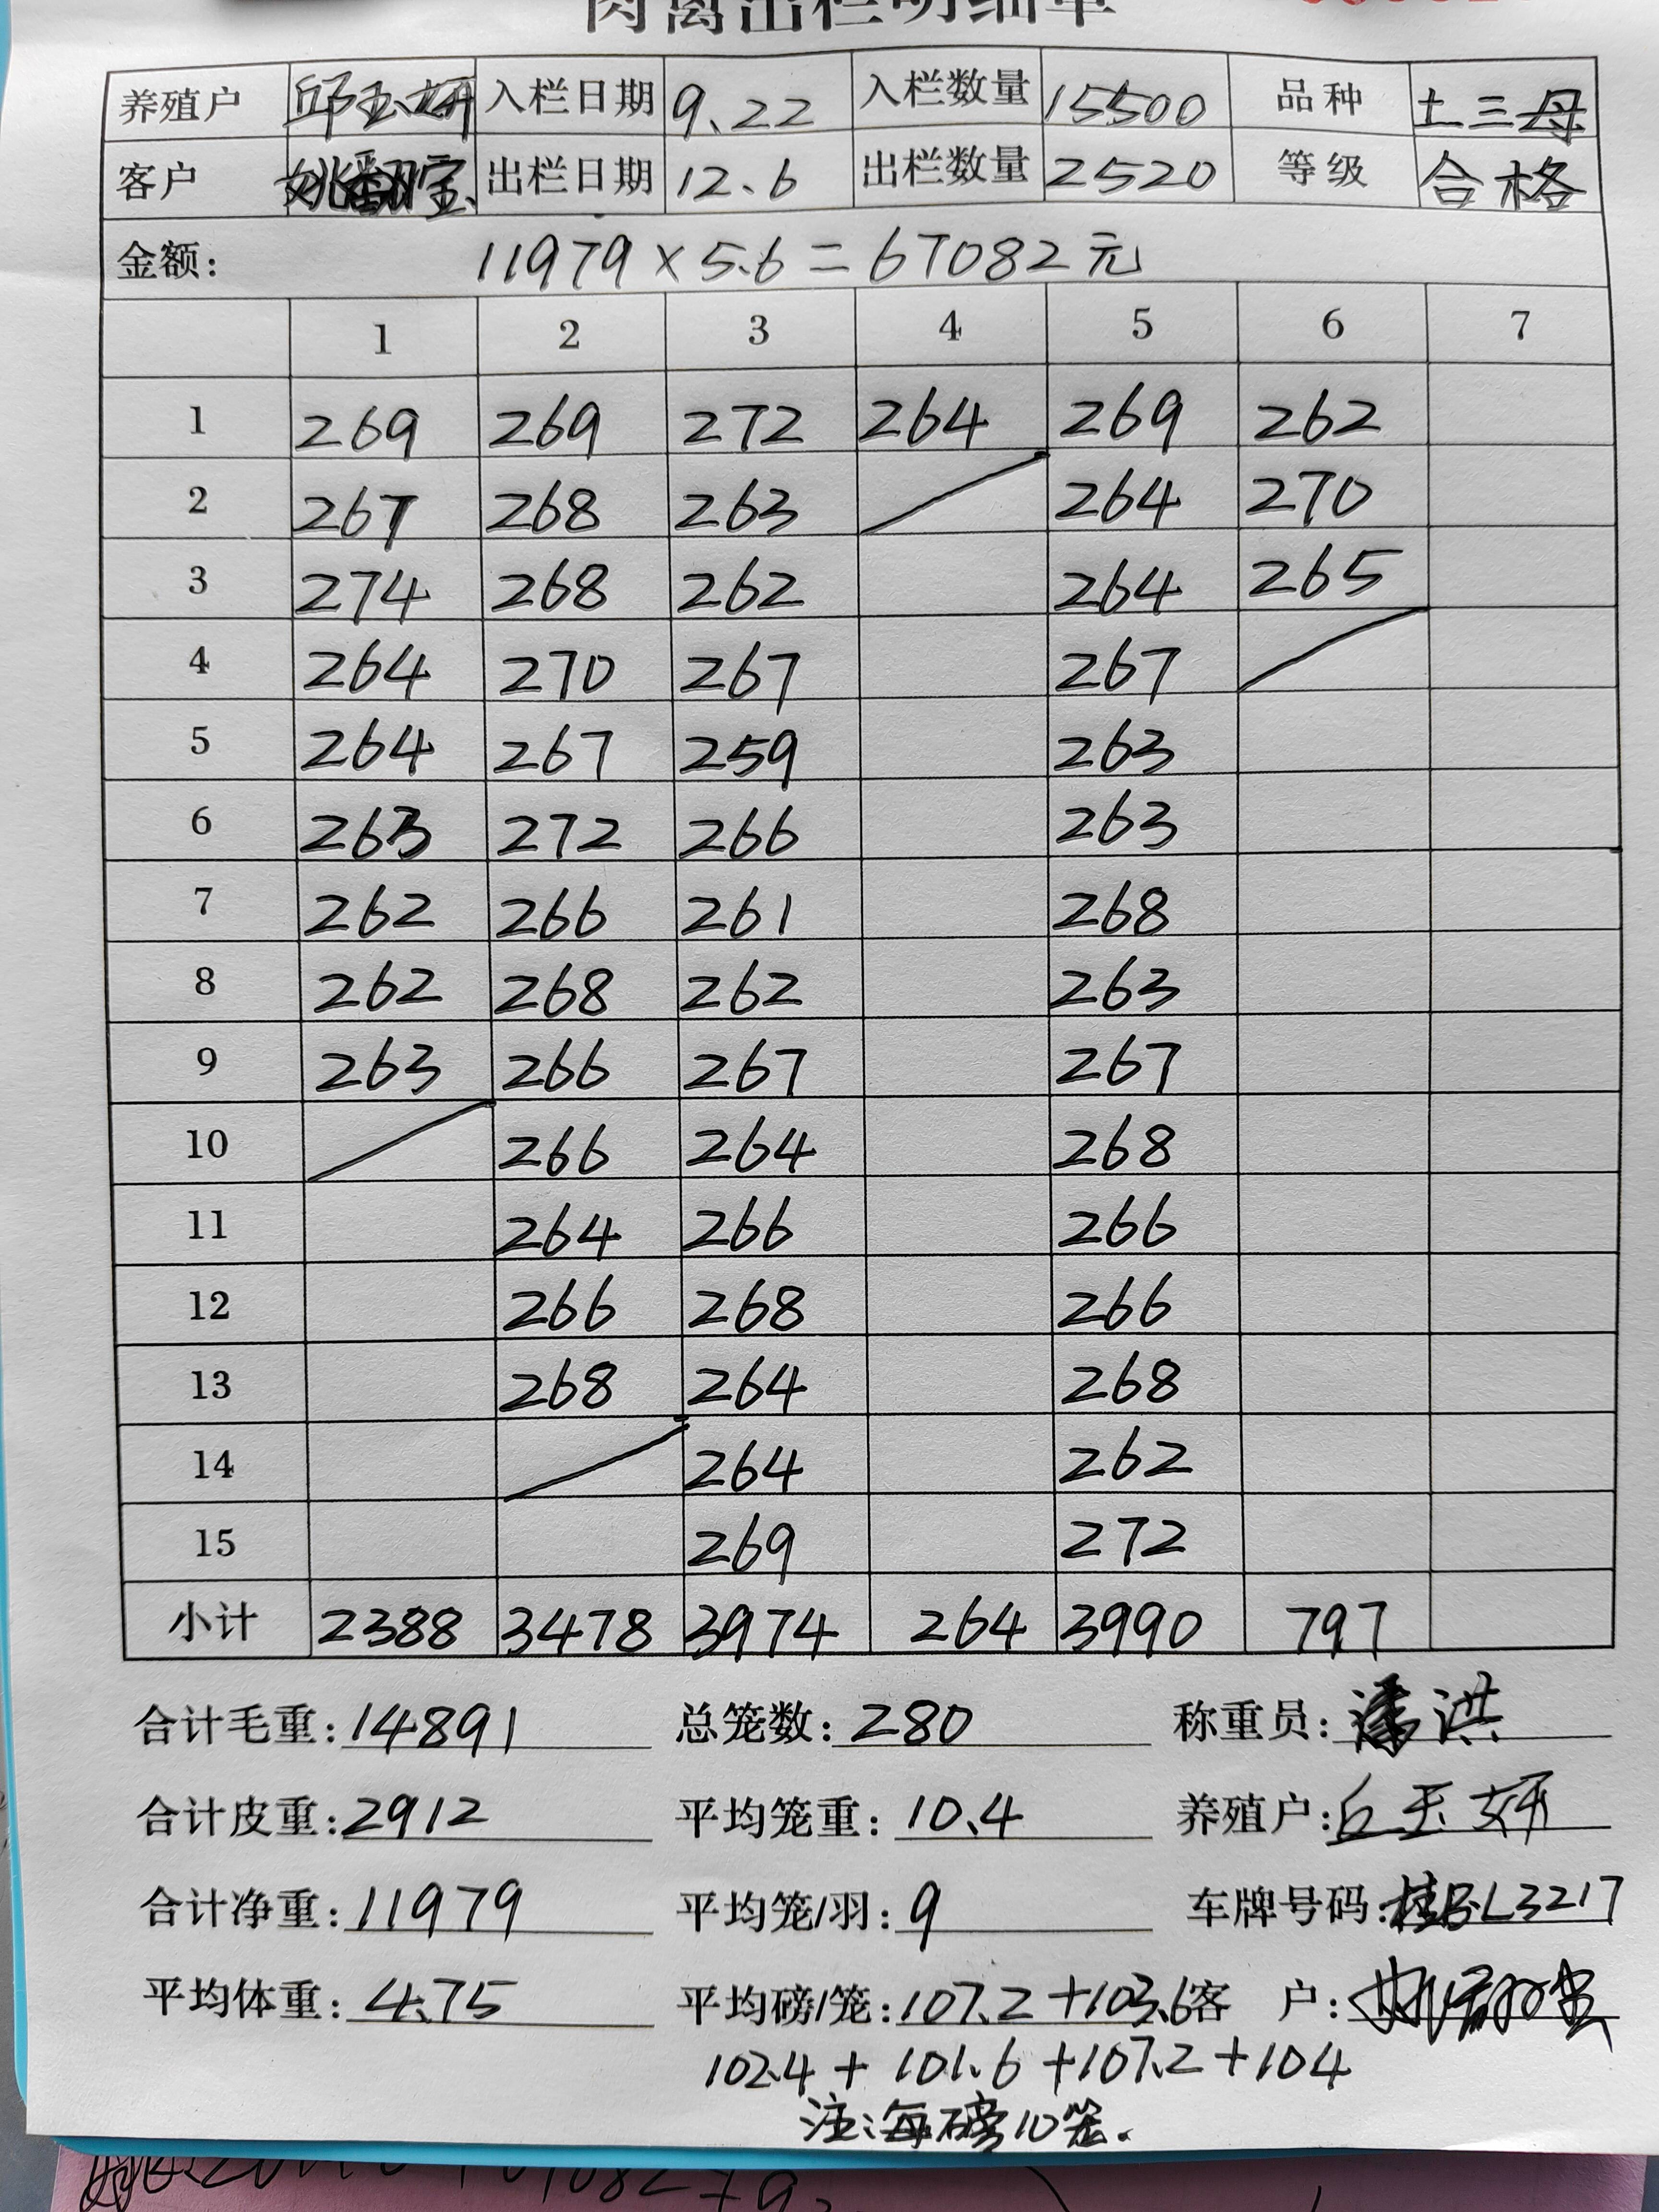 肉禽出栏明细单
养殖户 邱玉妍 入栏日期 9.22 入栏数量 15500 品种 土三母
客户 姚翻宝 出栏日期 12.6 出栏数量 2520 等级 合格
金额: 11979×5.6=67082元
1 2 3 4 5 6 7
1 269 269 272 264 269 262
2 267 268 263 264 270
3 274 268 262 264 265
4 264 270 267 267
5 264 267 259 263
6 263 272 266 263
7 262 266 261 268
8 262 268 262 263
9 263 266 267 267
10 266 264 268
11 264 266 266
12 266 268 266
13 268 264 268
14 264 262
15 269 272
小计 2388 3478 3974 264 3990 797
合计毛重: 14891 总笼数: 280 称重员: 潘洪
合计皮重: 2912 平均笼重: 10.4 养殖户: 丘玉妍
合计净重: 11979 平均笼/羽: 9 车牌号码: 桂BL3217
平均体重: 4.75 平均磅/笼: 107.2+103.6 客户:
102.4+101.6+107.2+104
注:每磅10笼.